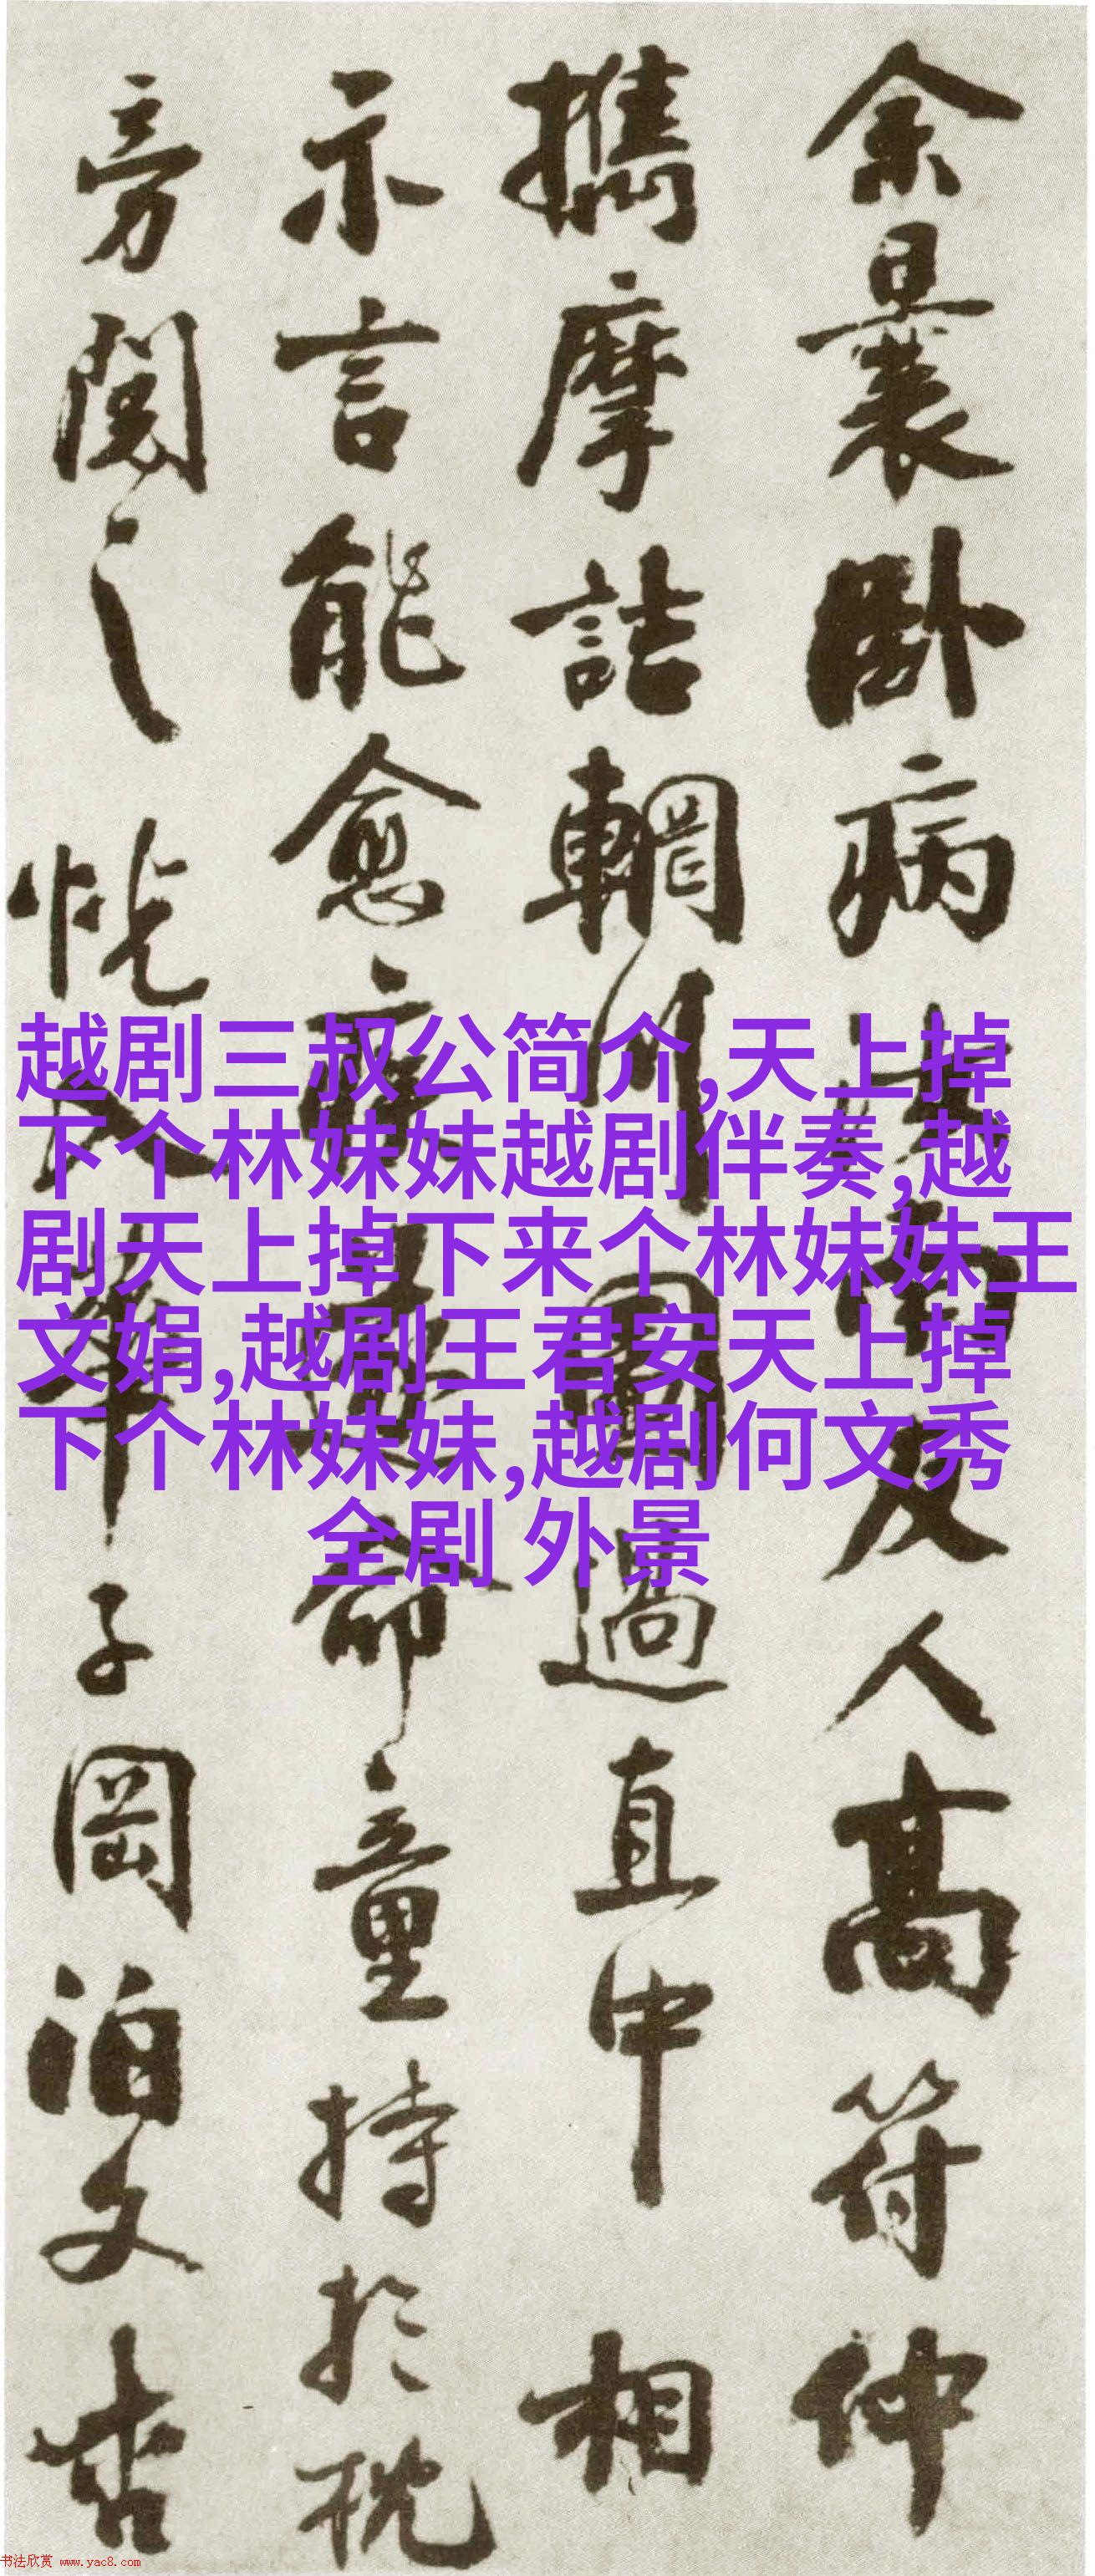 余曩卧病南友人高符仲
携摩詰輞川圖過直中相
示言能愈命童持於枕
旁閱之恍入華子岡泊文杏
越剧三叔公简介,天上掉
下个林妹妹越剧伴奏,越
剧天上掉下来个林妹妹王
文娟,越剧王君安天上掉
下个林妹妹,越剧何文秀
全剧 外景
书法欣赏 www.yac8.com